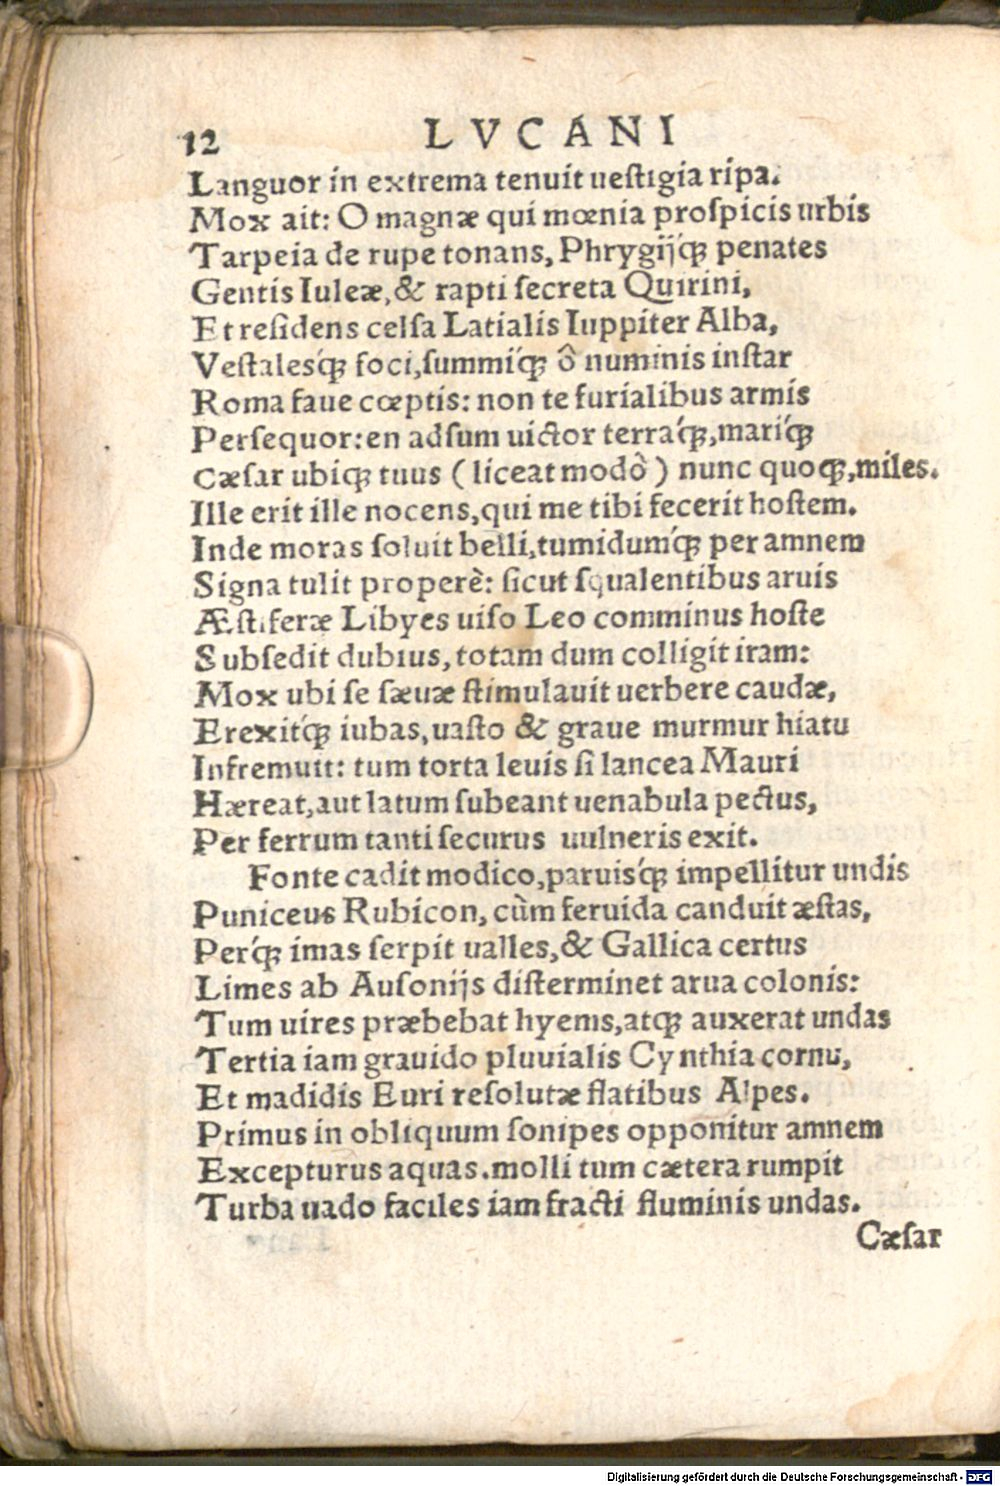 12 LVCANI
Languor in extrema tenuit ueſtigia ripa.
Mox ait: O magnæ qui mœnia proſpicis urbis
Tarpeia de rupe tonans, Phrygijq́ꝫ penates
Gentis Iuleæ, & rapti ſecreta Quirini,
Et reſidens celſa Latialis Iuppiter Alba,
Veſtalesq́ꝫ foci, ſummiq́ꝫ ô numinis inſtar
Roma faue cœptis: non te furialibus armis
Perſequor: en adſum uictor terraq́ꝫ, mariq́ꝫ
Cæſar ubiqꝫ tuus (liceat modò) nunc quoqꝫ, miles.
Ille erit ille nocens, qui me tibi fecerit hoſtem.
Inde moras ſoluit belli, tumidumq́ꝫ per amnem
Signa tulit properè: ſicut ſqualentibus aruis
Æſtiferæ Libyes uiſo Leo comminus hoſte
Subſedit dubius, totam dum colligit iram:
Mox ubi ſe ſæuæ ſtimulauit uerbere caudæ,
Erexitq́ꝫ iubas, uaſto & graue murmur hiatu
Infremuit: tum torta leuis ſi lancea Mauri
Hæreat, aut latum ſubeant uenabula pectus,
Per ferrum tanti ſecurus uulneris exit.
Fonte cadit modico, paruisq́ꝫ impellitur undis
Puniceus Rubicon, cùm feruida canduit æſtas,
Perq́ꝫ imas ſerpit ualles, & Gallica certus
Limes ab Auſonijs diſterminet arua colonis:
Tum uires præbebat hyems, atqꝫ auxerat undas
Tertia iam grauido pluuialis Cynthia cornu,
Et madidis Euri reſolutæ flatibus Alpes.
Primus in obliquum ſonipes opponitur amnem
Excepturus aquas. molli tum cætera rumpit
Turba uado faciles iam fracti fluminis undas.
Cæſar
Digitalisierung gefördert durch die Deutsche Forschungsgemeinschaft - DFG